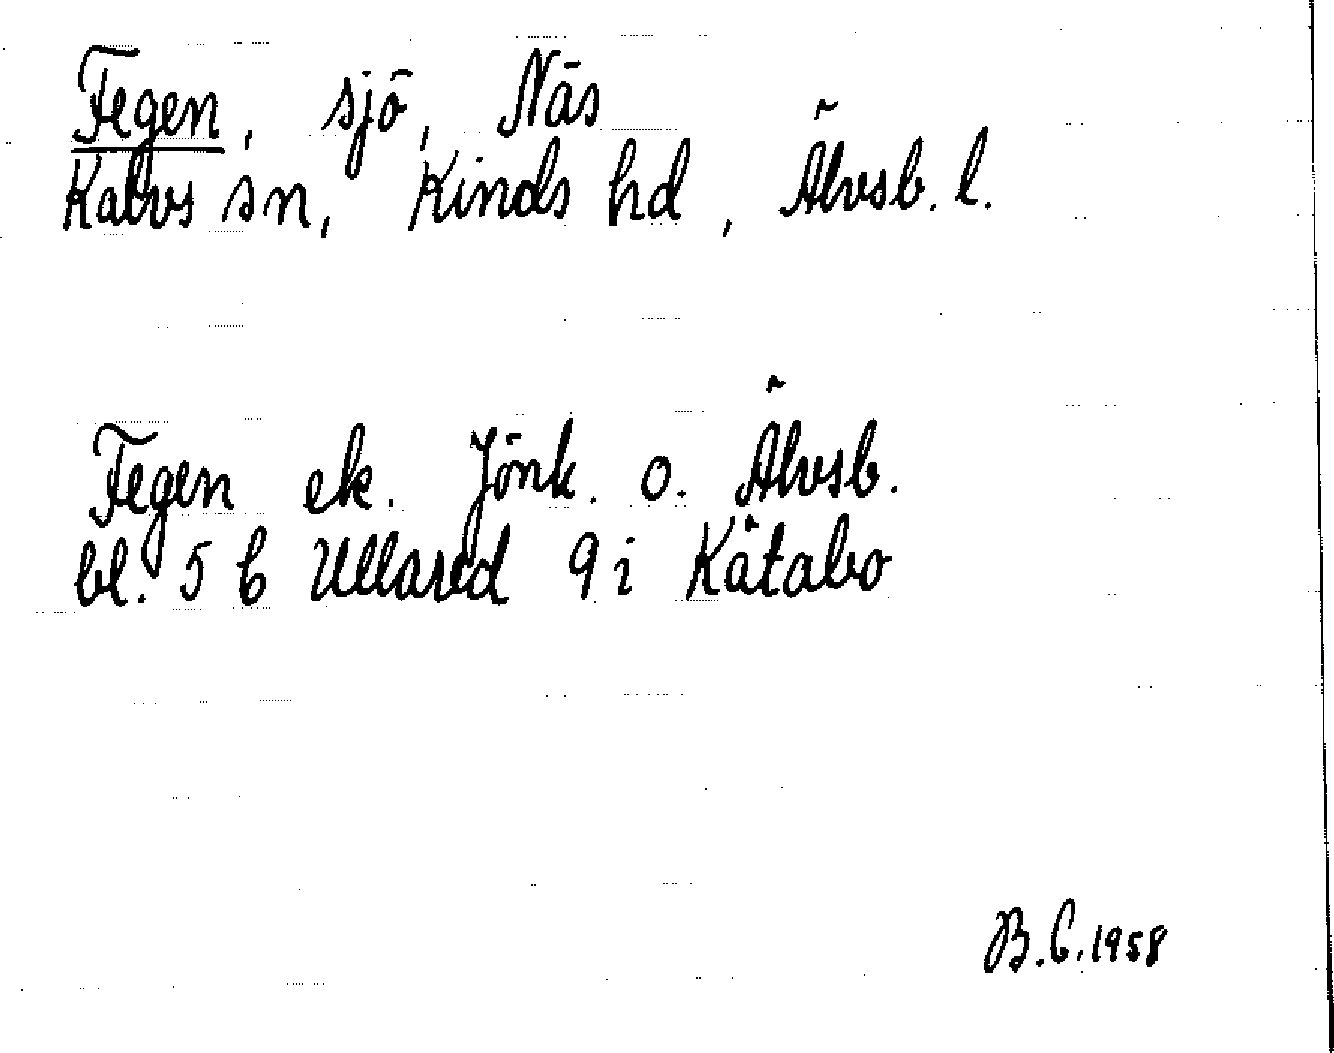 Fegen, sjö, Näs
Kalvs sn, Kinds hd, Älvsb. l.
Fegen ek. Jönk. o. Älvsb.
bl. 5 b Ullared 9 i Kätabo
B.C. 1958